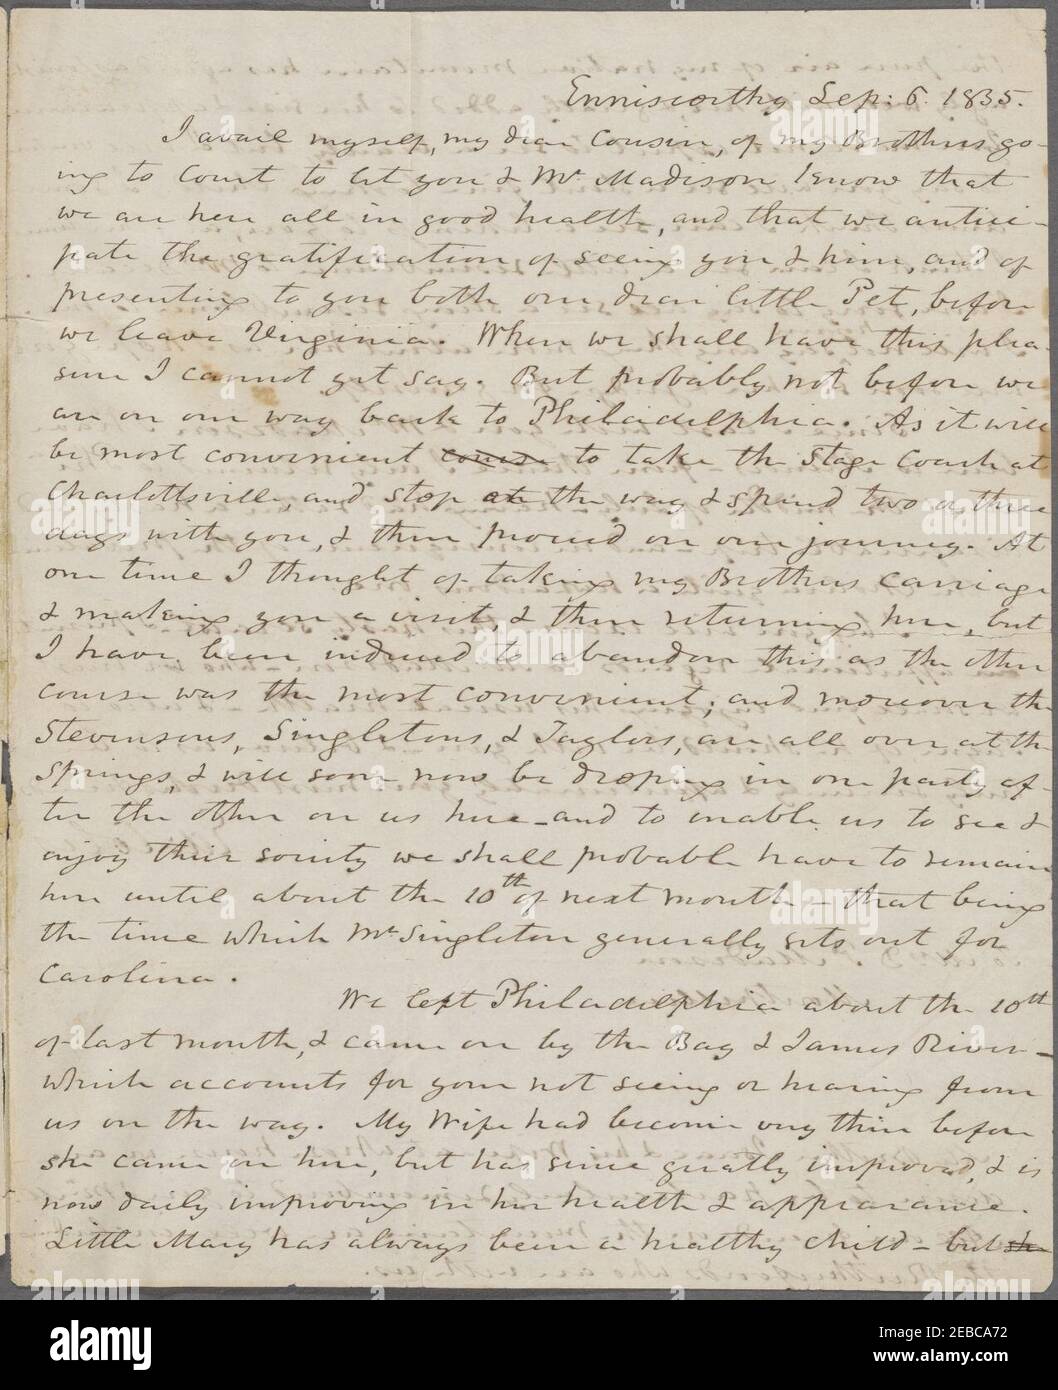 Enniscorthy Sep: 6. 1835.
I avail myself, my dear Cousin, of my Brothers go-
ing to Court to let you & Mr Madison know that
we are here all in good health, and that we antici-
pate the gratification of seeing you & him, and of
presenting to you both our dear little Pet, before
we leave Virginia. When we shall have this plea-
sure I cannot yet say. But probably not before we
are on our way back to Philadelphia. As it will
be most convenient course to take the Stage Coach at
Charlottsville, and stop on the way & spend two or three
days with you, & then proceed on our journey. At
one time I thought of taking my Brothers carriage
& making you a visit, & then returning here, but
I have been induced to abandon this as the other
course was the most convenient; and moreover the
Stevensons, Singletons, & Taylors, are all over at the
Springs, & will soon now be droping in one party af-
ter the other on us here - and to enable us to see &
enjoy their society we shall probable have to remain
here until about the 10th of next month - that being
the time which Mr Singleton generally sets out for
Carolina.
We left Philadelphia about the 10th
of last month, & came on by the Bay & James River -
which accounts for your not seeing or hearing from
us on the way. My Wife had become very thin before
she came on here, but has since greatly improved, & is
now daily improving in her health & appearance.
Little Mary has always been a healthy child - but she
alamy
Image ID: 2EBCA72
www.alamy.com